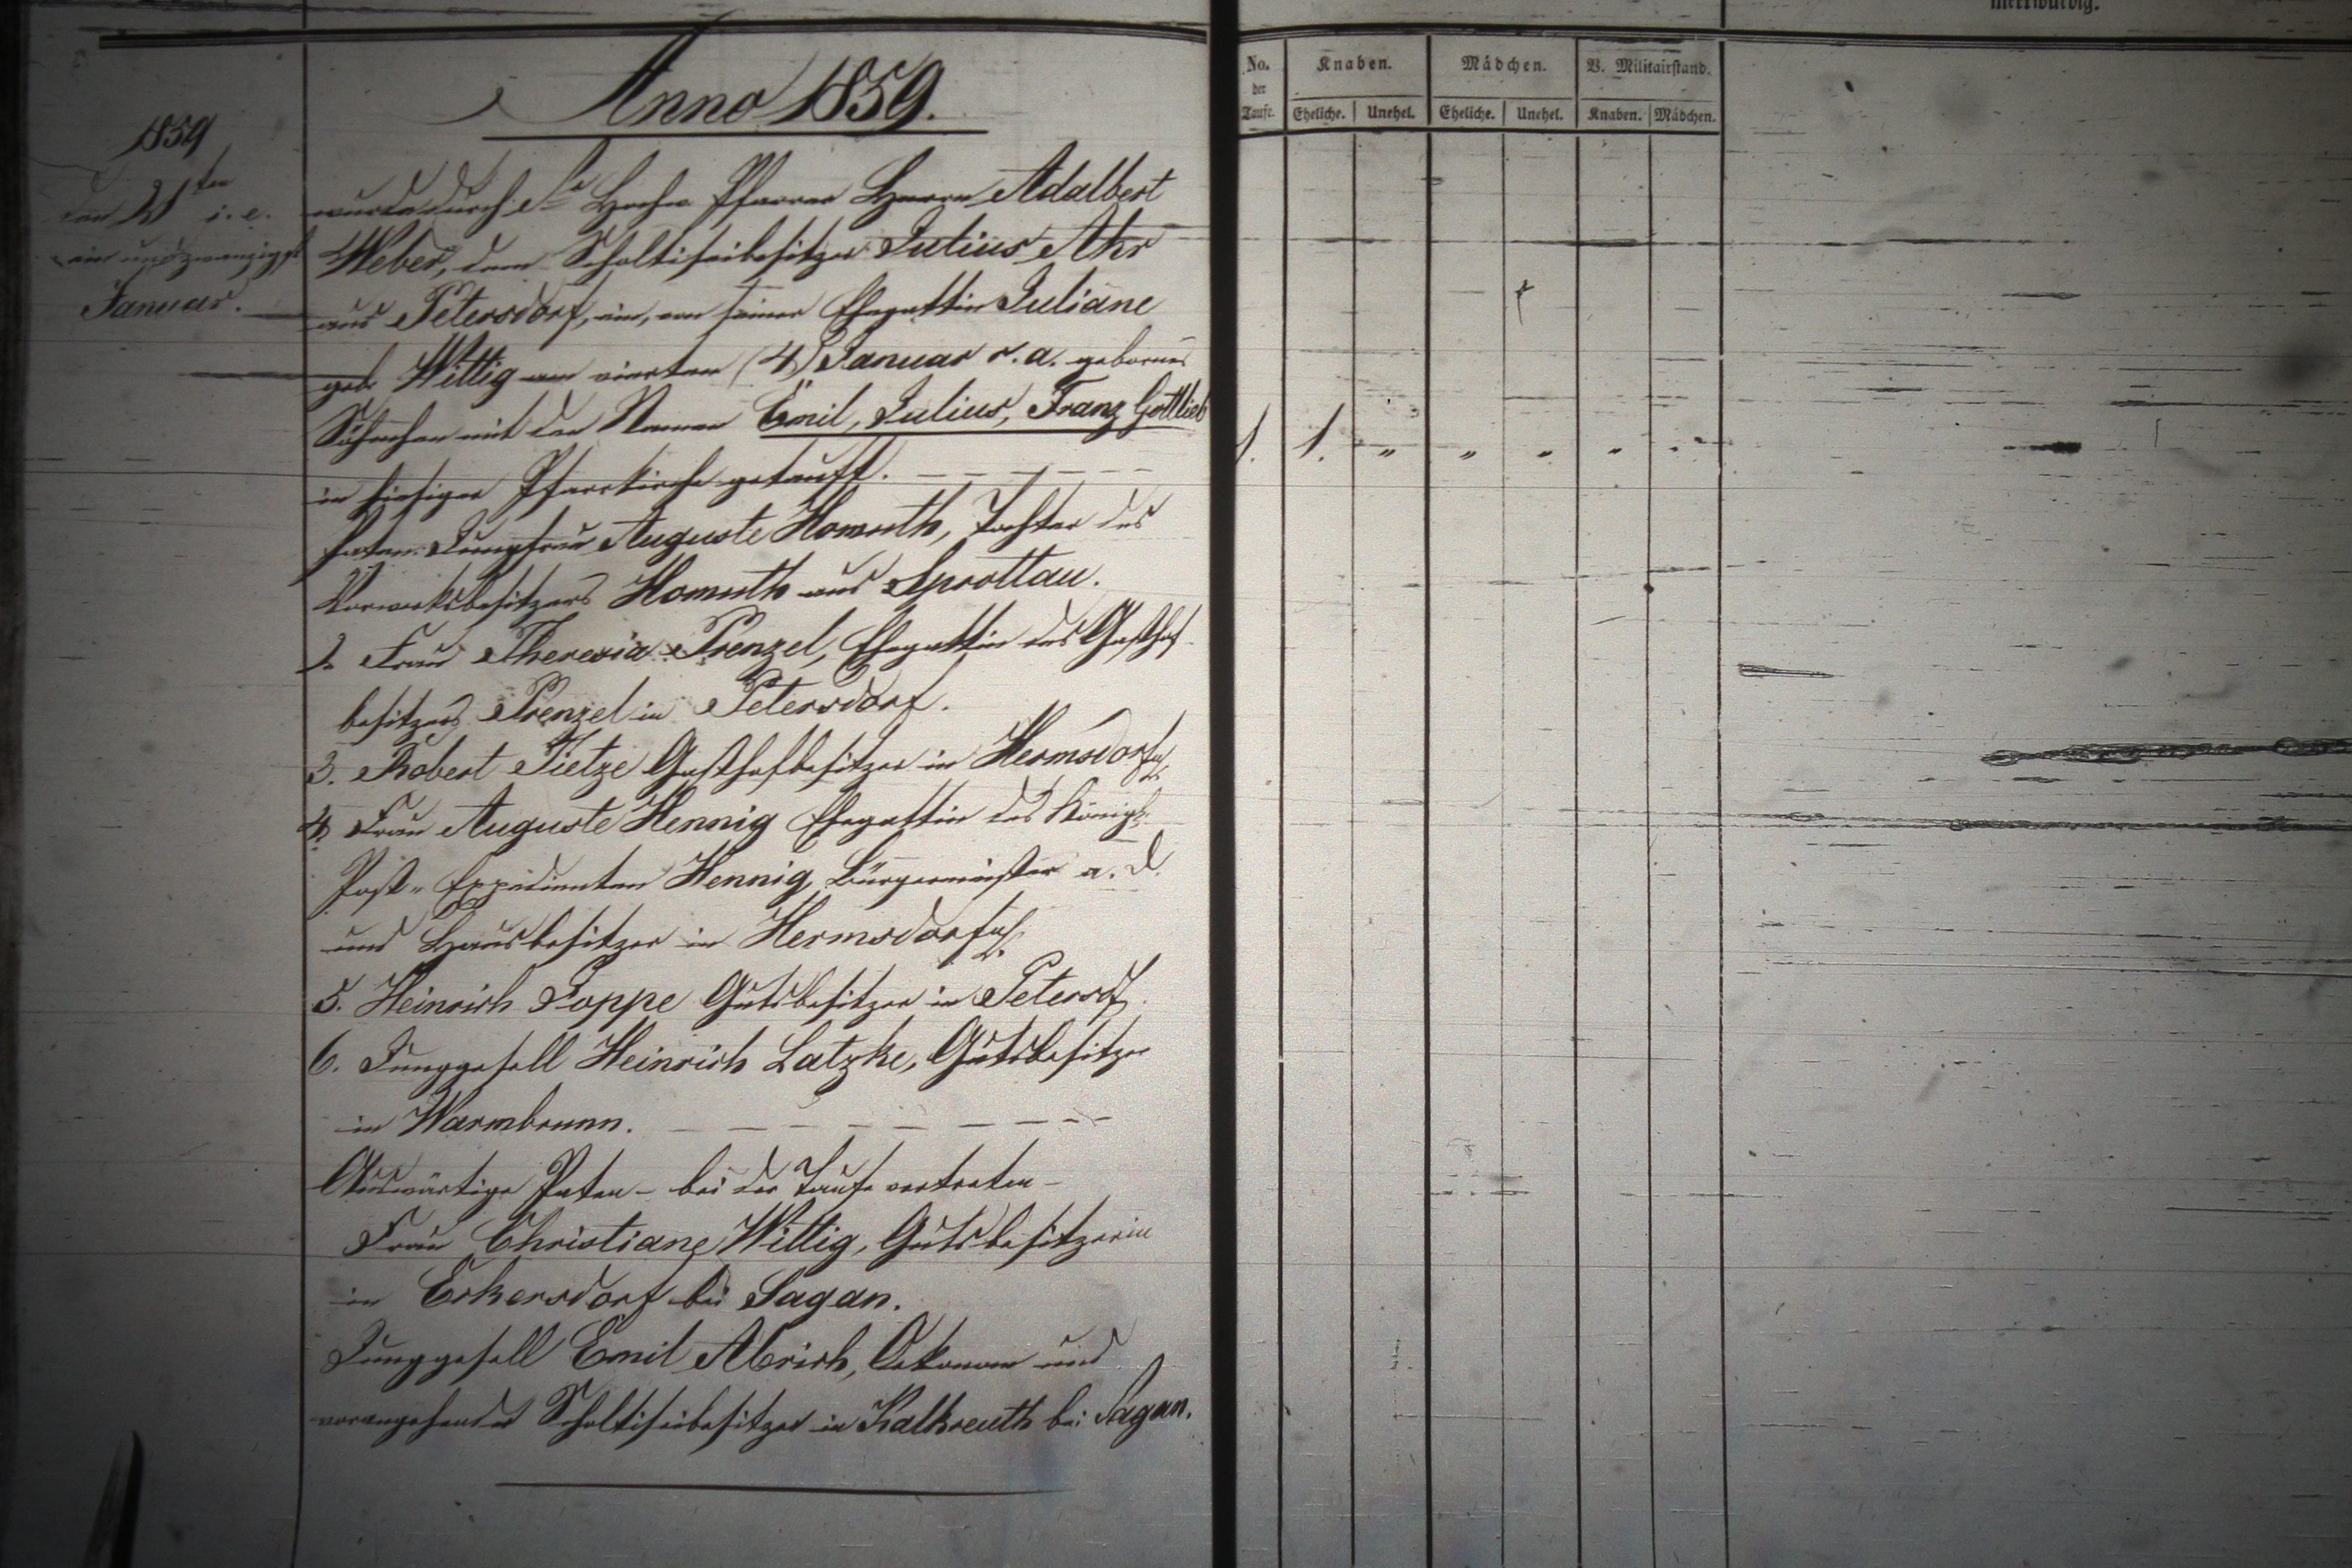 merkwürdig.
Anno 1859.
1859
den 21ten i. e.
ein und zwanzigst
Januar.
wurde durch Hochw. Pfarrer Herrn Adalbert
Weber, dem Scholtiseibesitzer Julius Ahr
aus Petersdorf, ein, von seiner Ehegattin Juliane
geb. Wittig am vierten (4) Januar r. a. gebornes
Söhnchen mit den Namen Emil, Julius, Franz Gottlieb
in hiesiger Pfarrkirche getauft.
Paten: Jungfrau Auguste Homuth, Tochter des
Vorwerksbesitzers Homuth aus Sprottau.
2. Frau Theresia Prenzel, Ehegattin des Gasthof-
besitzers Prenzel in Petersdorf.
3. Robert Tietze Gasthofbesitzer in Hermsdorf
4. Frau Auguste Hennig Ehegattin des Königl.
Post-Expedienten Hennig, Bürgermeister a. D.
und Hausbesitzer in Hermsdorf
5. Heinrich Poppe Gutsbesitzer in Petersdf.
6. Junggesell Heinrich Latzke, Gutsbesitzer
in Warmbrunn.
Auswärtige Paten - bei der Taufe vertreten -
Frau Christiane Wittig, Gutsbesitzerin
in Eckersdorf bei Sagan.
Junggesell Emil Abrich, Oekonom und
angehender Scholtiseibesitzer in Kalkreuth bei Sagan.
No. der Taufe. Knaben. Mädchen. V. Militairstand.
Eheliche. Unehel. Eheliche. Unehel. Knaben. Mädchen.
1. 1. " " " " "